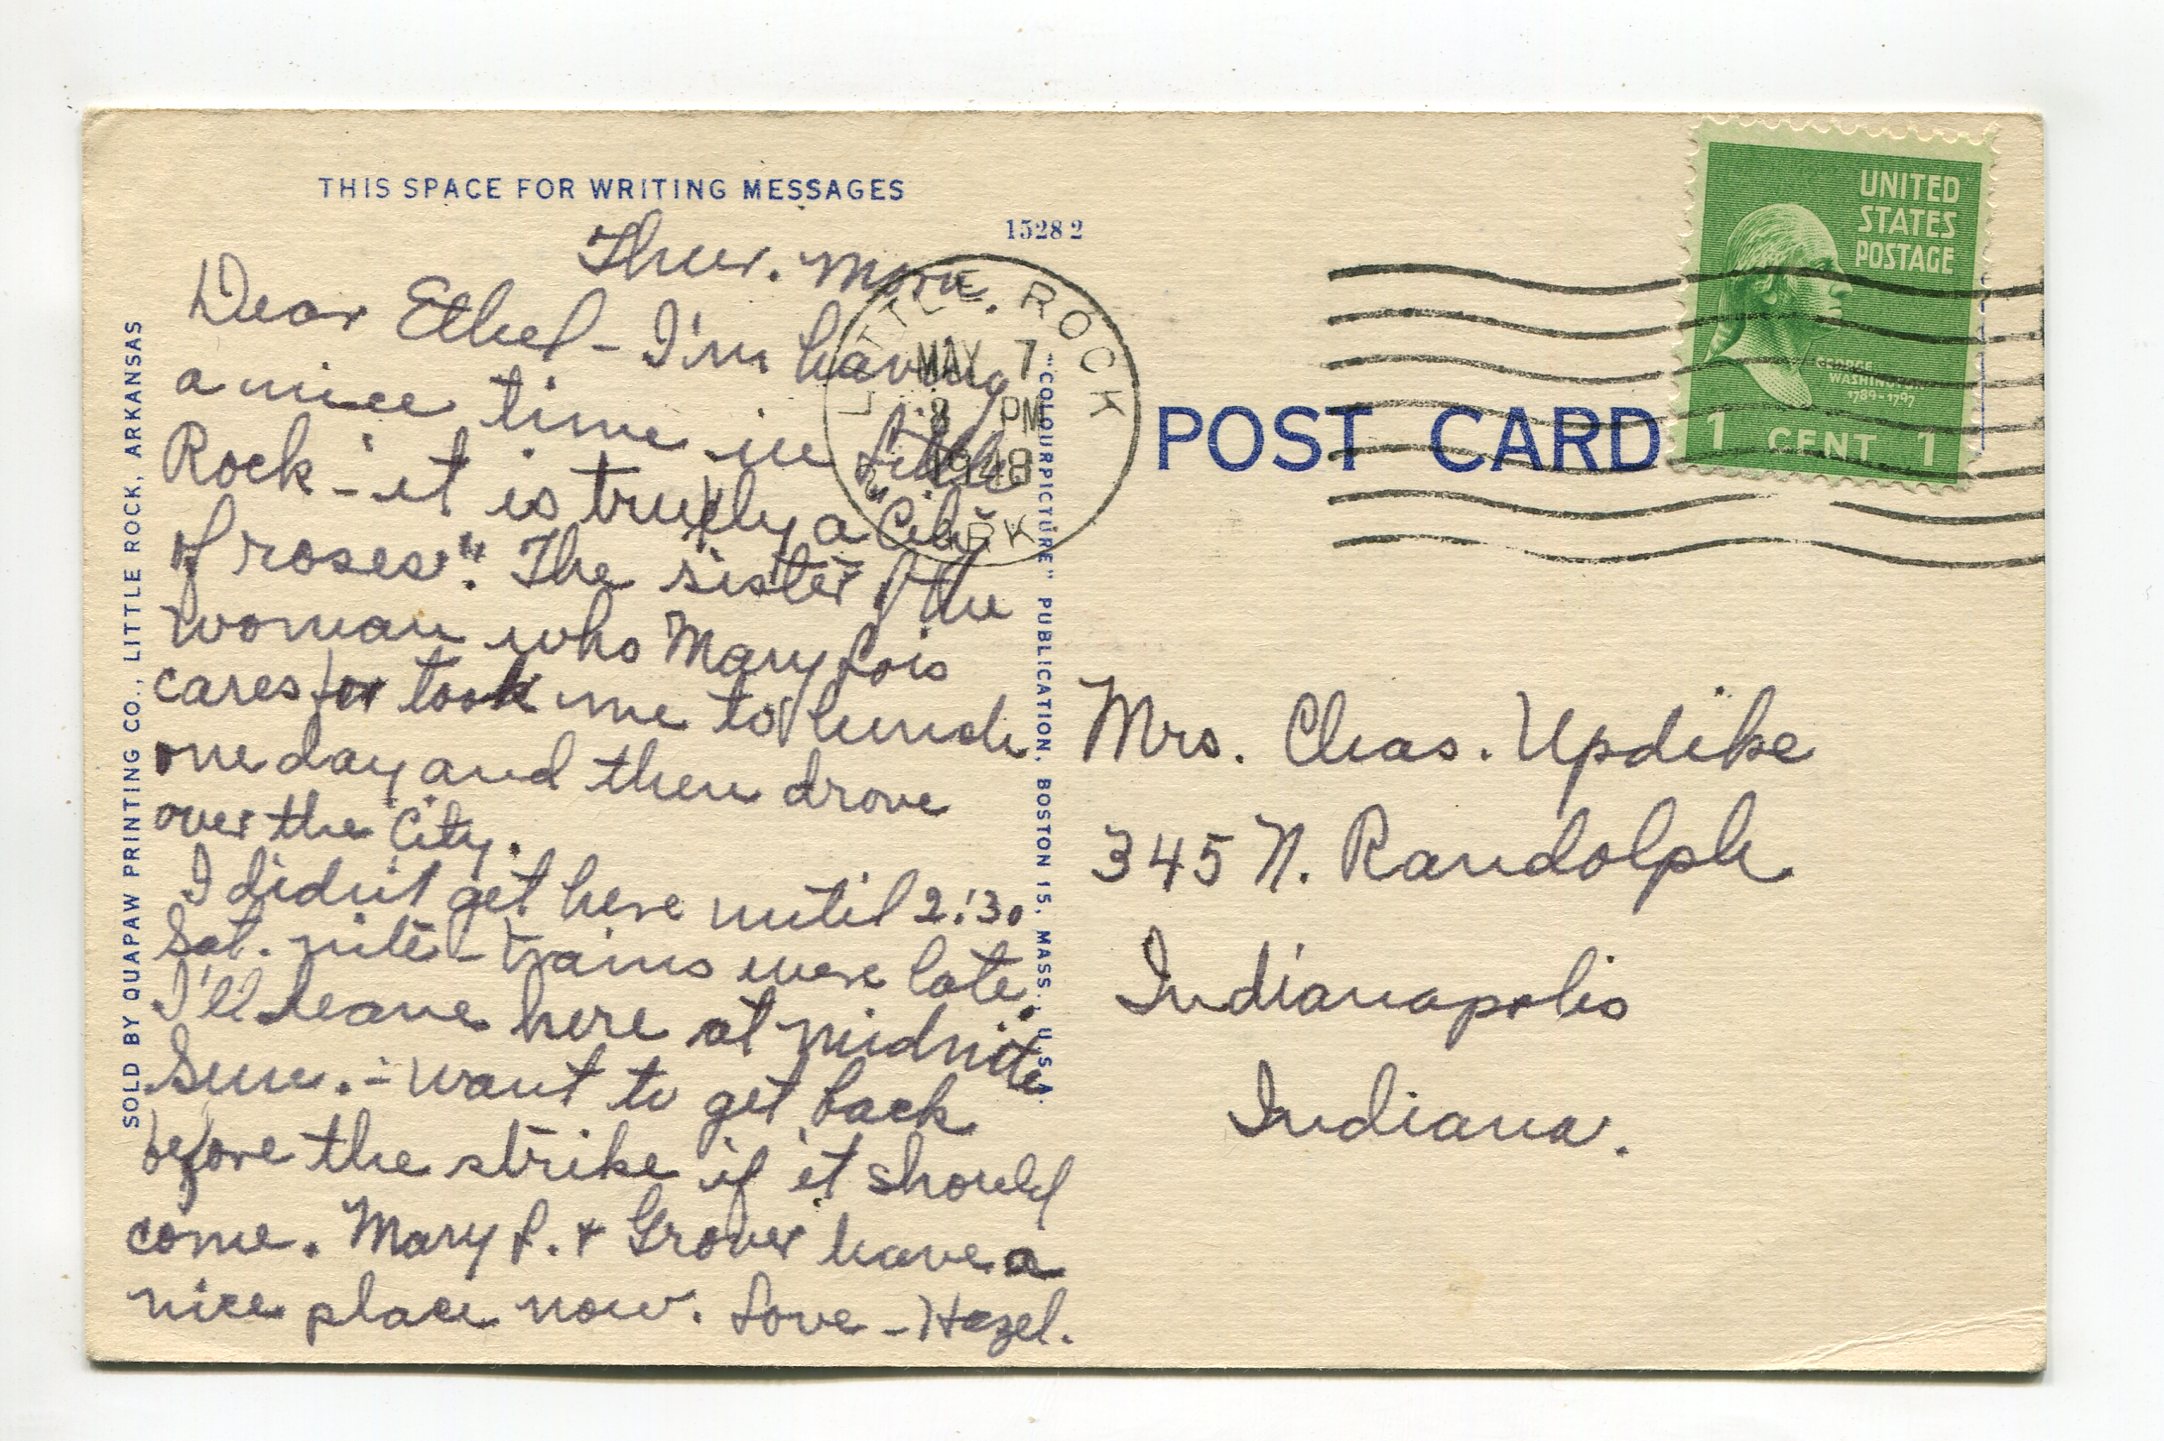 THIS SPACE FOR WRITING MESSAGES
15282
Thur. Morn.
Dear Ethel - I'm having
a nice time in Little
Rock - it is truly a "City
of roses". The sister of the
woman who Mary Lois
cares for took me to lunch
one day and then drove
over the City.
I didn't get here until 2:30
Sat. nite - trains were late.
I'll leave here at midnite
Sun. - want to get back
before the strike if it should
come. Mary L. + Grover have a
nice place now. Love - Hazel.
SOLD BY QUAPAW PRINTING CO., LITTLE ROCK, ARKANSAS
"COLOURPICTURE" PUBLICATION, BOSTON 15, MASS., U.S.A.
LITTLE ROCK
MAY 7
PM
1948
ARK
POST CARD
UNITED
STATES
POSTAGE
GEORGE
WASHINGTON
1789-1797
1 CENT 1
Mrs. Chas. Updike
345 N. Randolph
Indianapolis
Indiana.